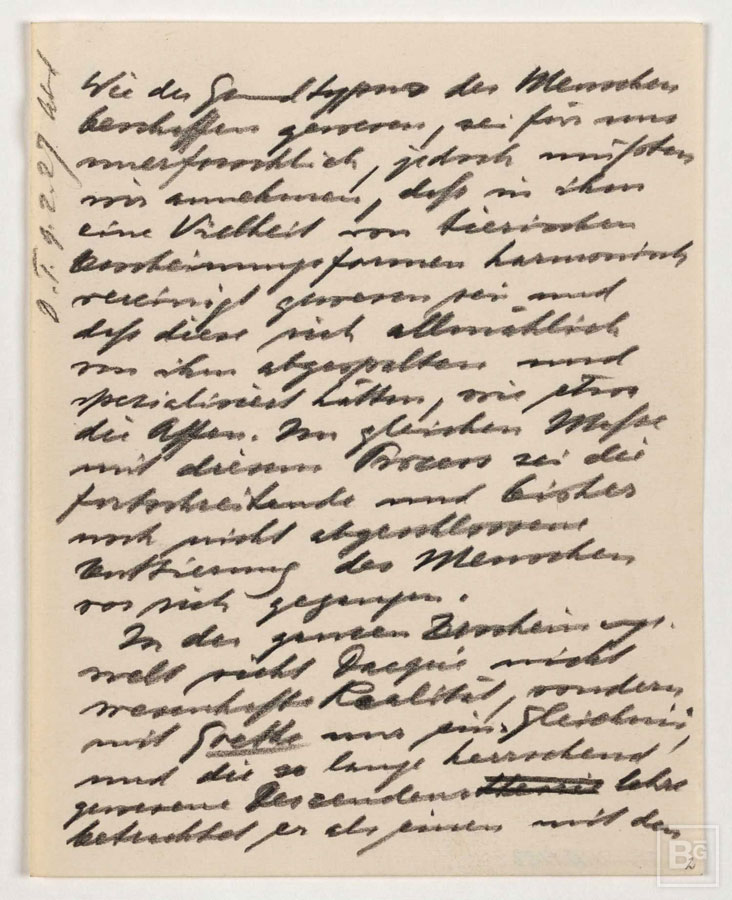 D. T. 9.2.27. Abd
Wie der Grundtypus des Menschen
beschaffen gewesen, sei für uns
unerforschlich, jedoch müßten
wir annehmen, daß in ihm
eine Vielheit von tierischen
Erscheinungsformen harmonisch
vereinigt gewesen sei und
daß diese sich allmählich
von ihm abgespalten und
spezialisiert hätten, wie etwa
die Affen. Im gleichen Maße
mit diesem Process sei die
fortschreitende und bisher
noch nicht abgeschlossene
Enttierung des Menschen
vor sich gegangen.
In der ganzen Erscheinungs-
welt sieht Dacqué nicht
wesenhafte Realität, sondern
mit Goethe nur ein Gleichnis,
und die so lange herrschend
gewesene Descendenz lehre
betrachtet er als einen mit den
BG
2